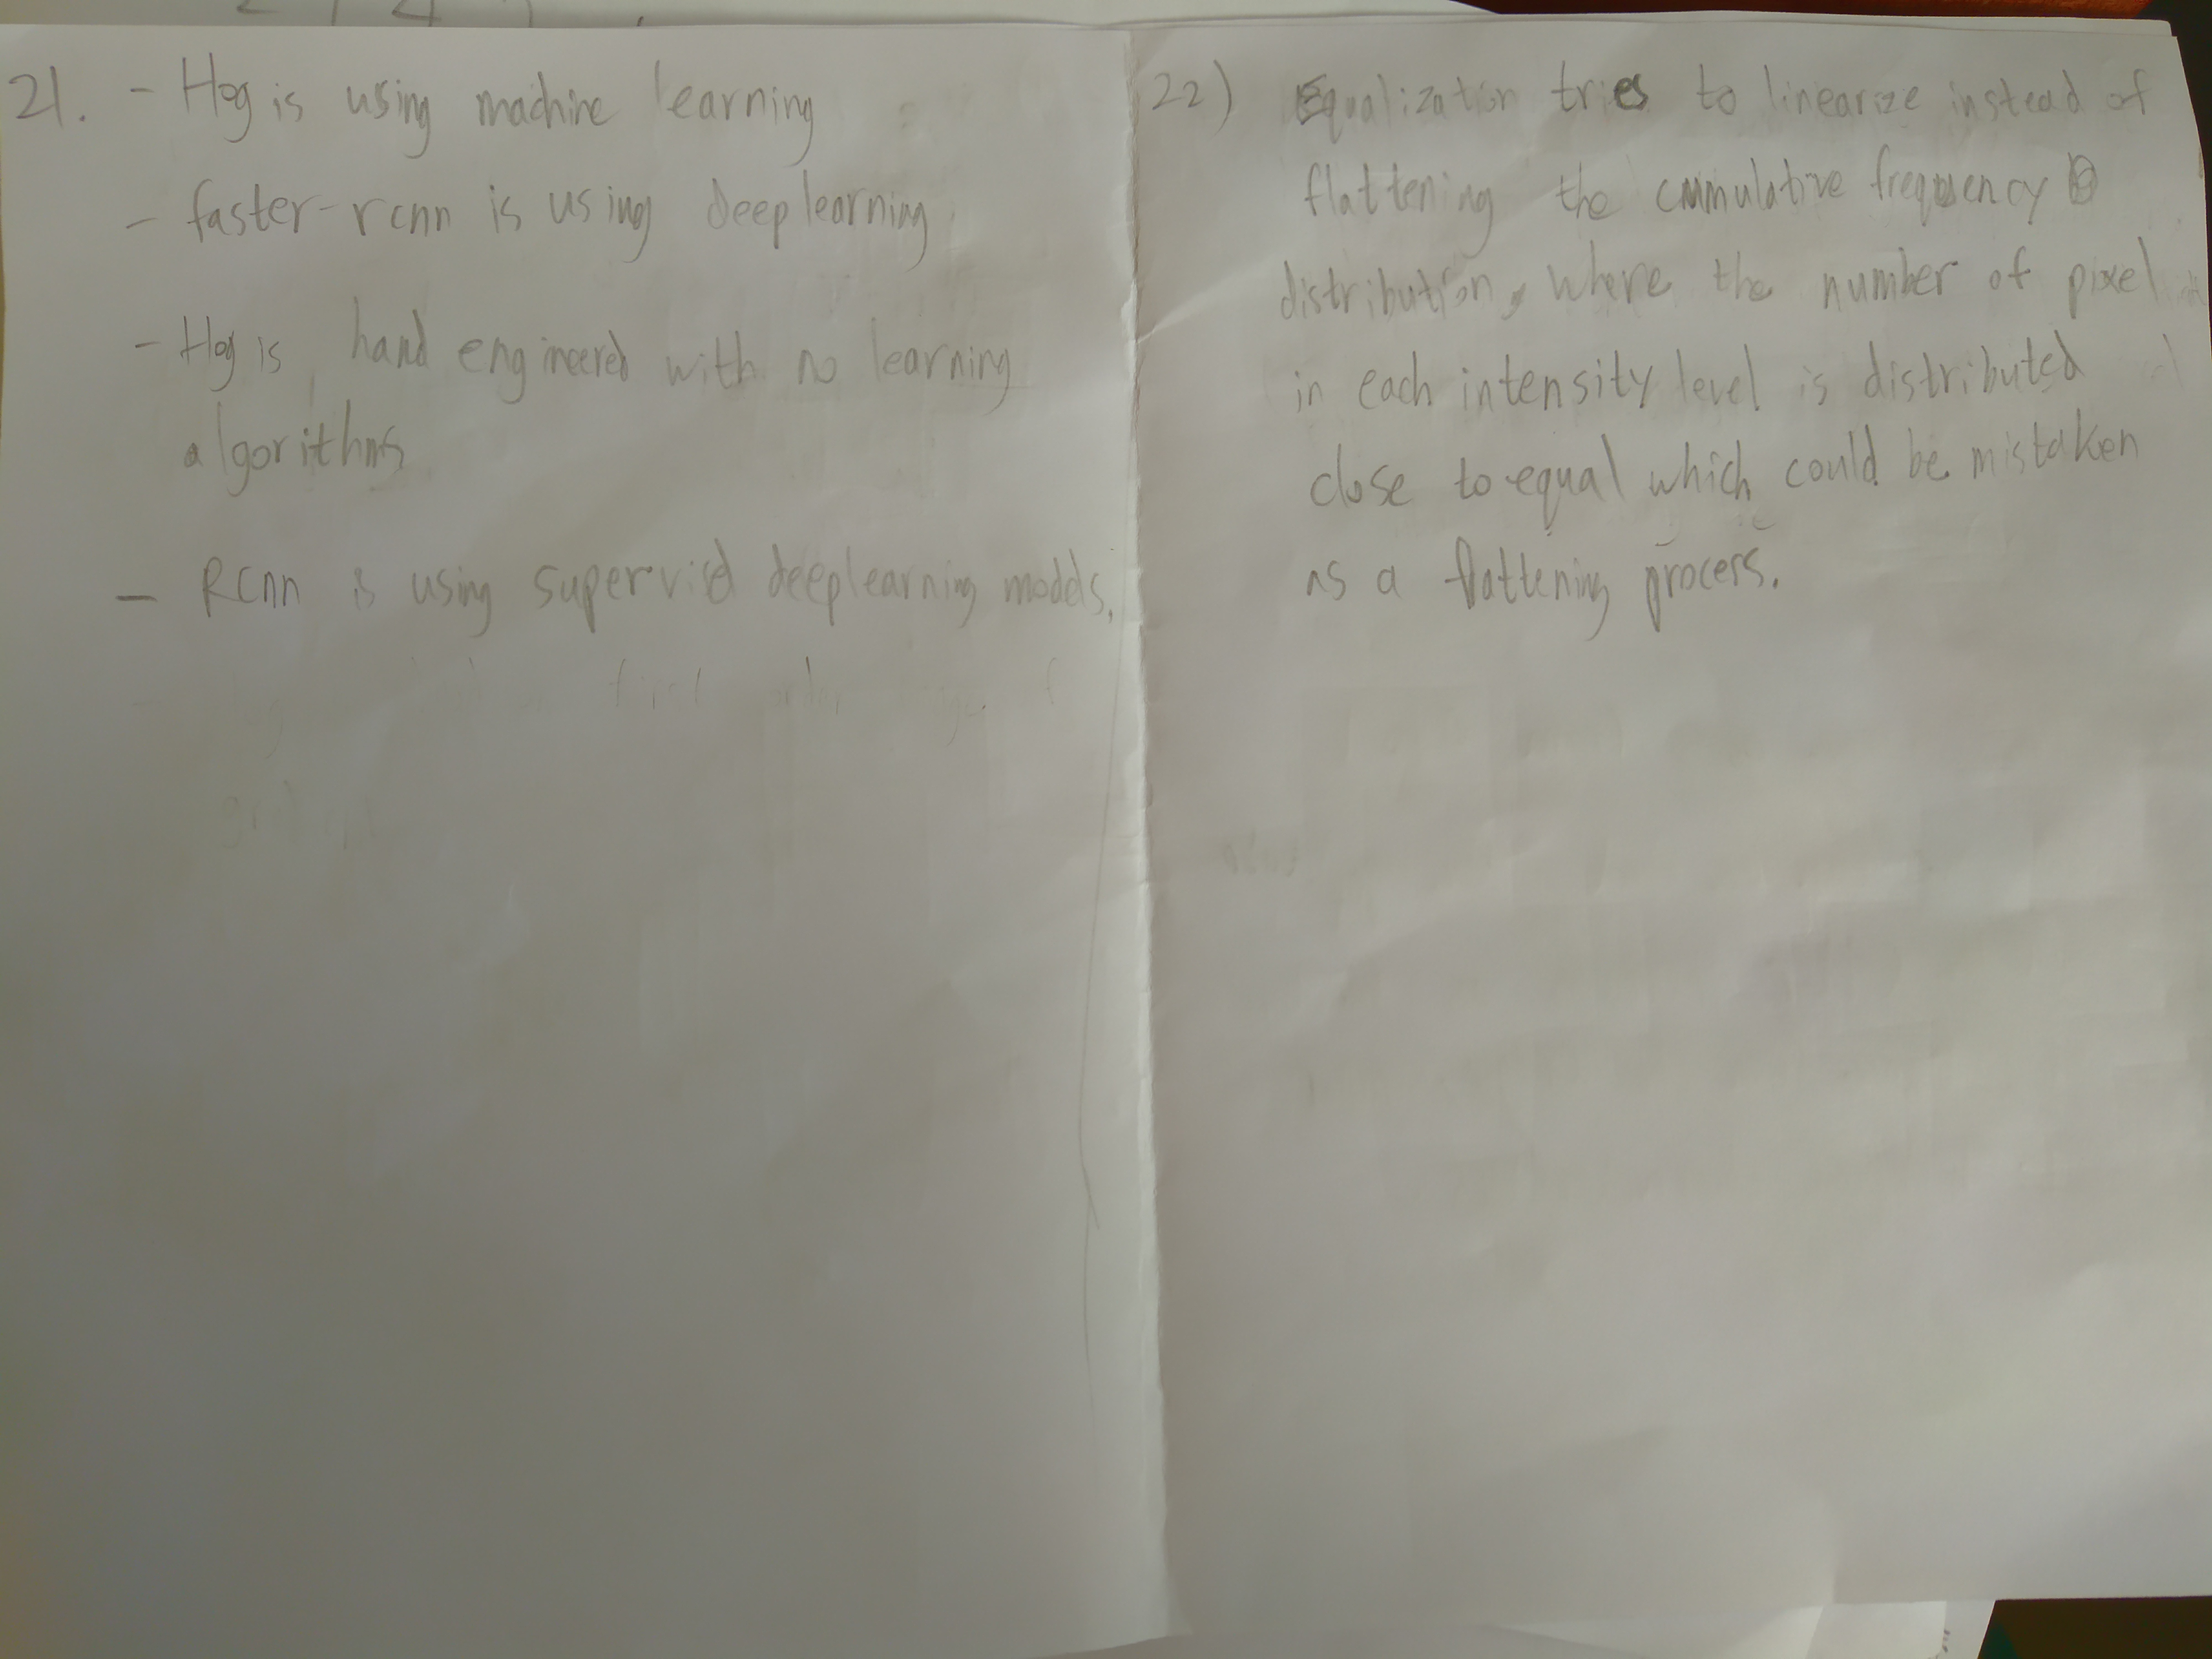 21. - Hog is using machine learning
- faster-rcnn is using deeplearning
- Hog is hand engineered with no learning
algorithms
- Rcnn is using supervisd deeplearning models.
22) Equalization tries to linearize instead of
flattening the cummulative frequency
distribution, where the number of pixel
in each intensity level is distributed
close to equal which could be mistaken
as a flattening process.